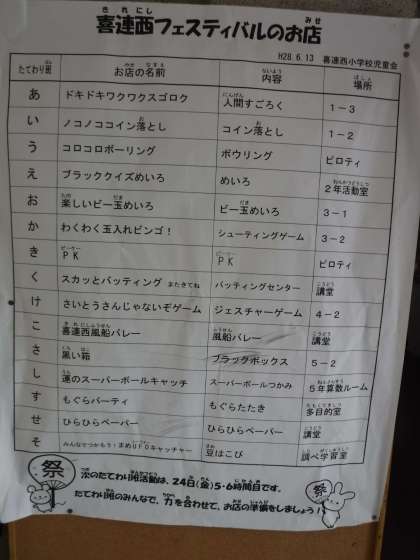 喜連西フェスティバルのお店
H28.6.13 喜連西小学校児童会
たてわり班 お店の名前 内容 場所
あ ドキドキワクワクスゴロク 人間すごろく 1－3
い ノコノココイン落とし コイン落とし 1－2
う コロコロボーリング ボウリング ピロティ
え ブラッククイズめいろ めいろ 2年活動室
お 楽しいビー玉めいろ ビー玉めいろ 3－1
か わくわく玉入れビンゴ！ シューティングゲーム 3－2
き PK PK ピロティ
く スカッとバッティング またきてね バッティングセンター 講堂
け さいとうさんじゃないぞゲーム ジェスチャーゲーム 4－2
こ 喜連西風船バレー 風船バレー 講堂
さ 黒い箱 ブラックボックス 5－2
し 運のスーパーボールキャッチ スーパーボールつかみ 5年算数ルーム
す もぐらパーティ もぐらたたき 多目的室
せ ひらひらペーパー ひらひらペーパー 講堂
そ みんなでつかもう！まめりドロキャッチャー 豆はこび 調べ学習室
祭 次のたてわり班活動は、24日(金)5・6時間目です。 祭
たてわり班のみんなで、力を合わせて、お店の準備をしましょう！